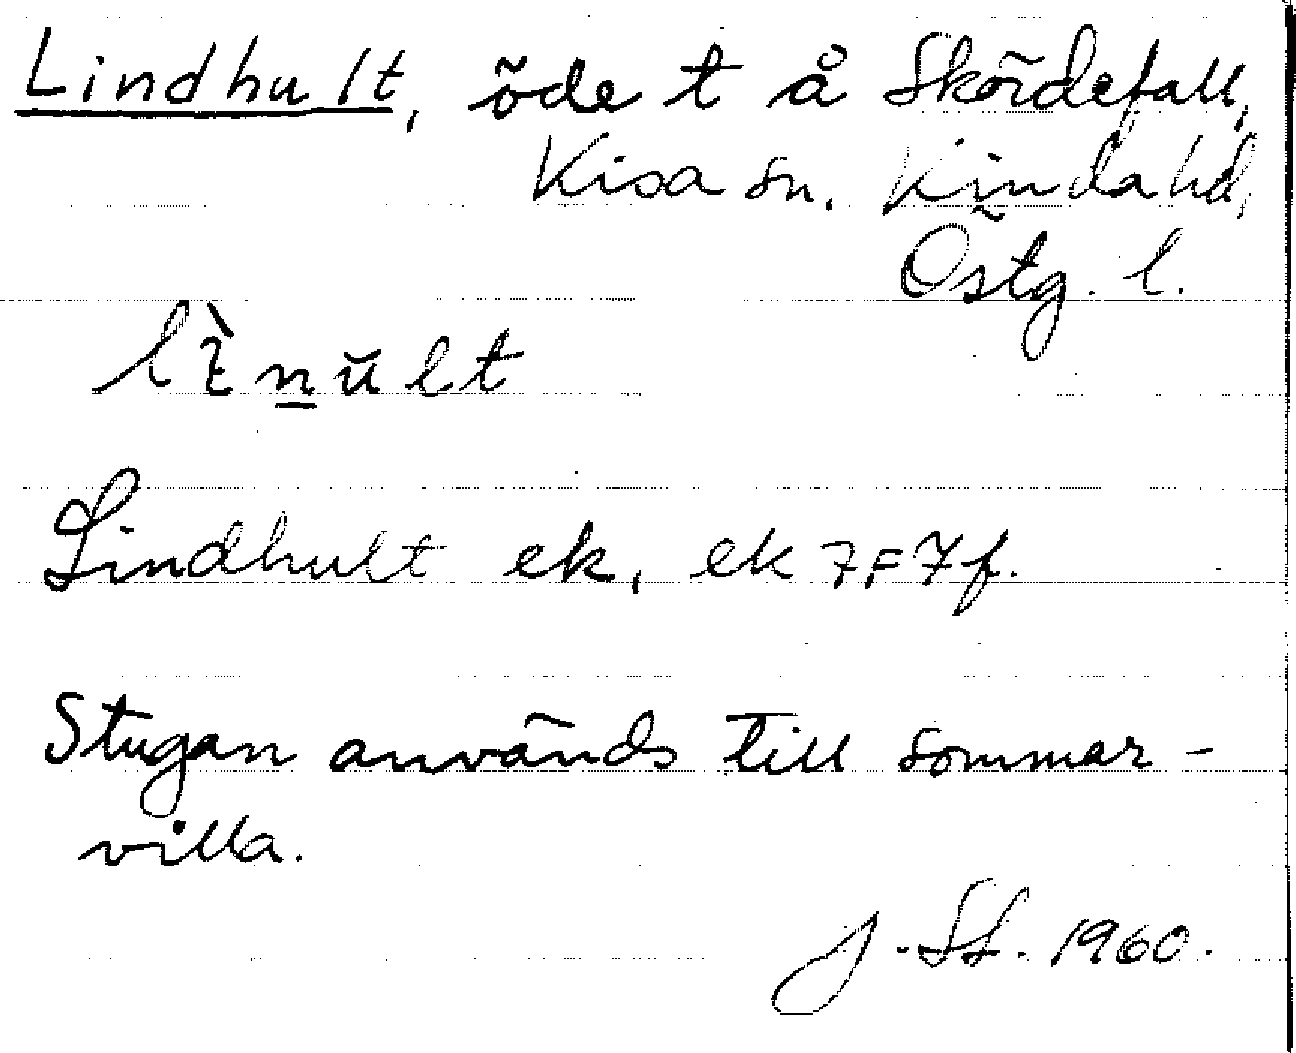 Lindhult, öde t å Skördefall,
Kisa sn. Kinda hd,
Östg. l.
lìn̲ŭlt
Lindhult ek, ek 7F7f.
Stugan används till sommar-
villa.
J. St. 1960.